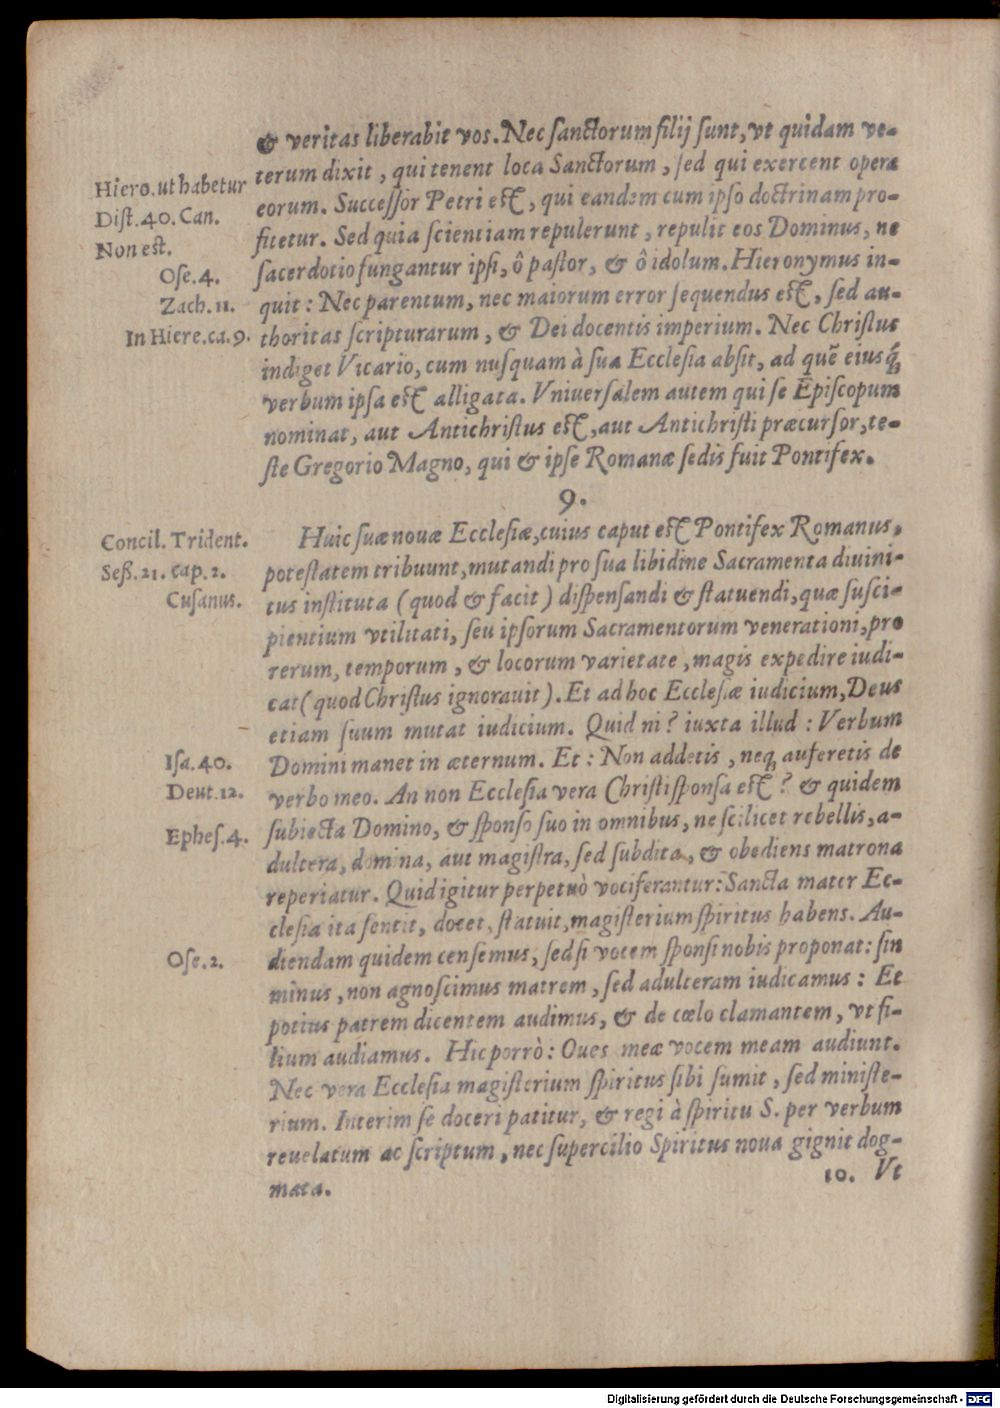 & veritas liberabit vos. Nec sanctorum filij sunt, vt quidam ve-
terum dixit, qui tenent loca Sanctorum, sed qui exercent opera
Hiero. ut habetur
eorum. Successor Petri est, qui eandem cum ipso doctrinam pro-
Dist. 40. Can.
fitetur. Sed quia scientiam repulerunt, repulit eos Dominus, ne
Non est.
sacerdotio fungantur ipsi, ô pastor, & ô idolum. Hieronymus in-
Ose. 4.
quit: Nec parentum, nec maiorum error sequendus est, sed au-
Zach. 11.
thoritas scripturarum, & Dei docentis imperium. Nec Christus
In Hiere. ca. 9.
indiget Vicario, cum nusquam à sua Ecclesia absit, ad quē eiusq́;
verbum ipsa est alligata. Vniversalem autem qui se Episcopum
nominat, aut Antichristus est, aut Antichristi præcursor, te-
ste Gregorio Magno, qui & ipse Romanæ sedis fuit Pontifex.
9.
Huic suæ nouæ Ecclesiæ, cuius caput est Pontifex Romanus,
Concil. Trident.
potestatem tribuunt, mutandi pro sua libidine Sacramenta diuini-
Seß. 21. cap. 2.
tus instituta (quod & facit) dispensandi & statuendi, quæ susci-
Cusanus.
pientium vtilitati, seu ipsorum Sacramentorum venerationi, pro
rerum, temporum, & locorum varietate, magis expedire iudi-
cat (quod Christus ignorauit). Et ad hoc Ecclesiæ iudicium, Deus
etiam suum mutat iudicium. Quid ni? iuxta illud: Verbum
Domini manet in æternum. Et: Non addetis, neq; auferetis de
Isa. 40.
verbo meo. An non Ecclesia vera Christi sponsa est? & quidem
Deut. 12.
subiecta Domino, & sponso suo in omnibus, ne scilicet rebellis, a-
Ephes. 4.
dultera, domina, aut magistra, sed subdita, & obediens matrona
reperiatur. Quid igitur perpetuò vociferantur: Sancta mater Ec-
clesia ita sentit, docet, statuit, magisterium spiritus habens. Au-
diendam quidem censemus, sed si vocem sponsi nobis proponat: sin
Ose. 2.
minus, non agnoscimus matrem, sed adulteram iudicamus: Et
potius patrem dicentem audimus, & de cœlo clamantem, vt fi-
lium audiamus. Hic porrò: Oues meæ vocem meam audiunt.
Nec vera Ecclesia magisterium spiritus sibi sumit, sed ministe-
rium. Interim se doceri patitur, & regi à spiritu S. per verbum
reuelatum ac scriptum, nec supercilio Spiritus noua gignit dog-
mata.
10. Vt
Digitalisierung gefördert durch die Deutsche Forschungsgemeinschaft - DFG